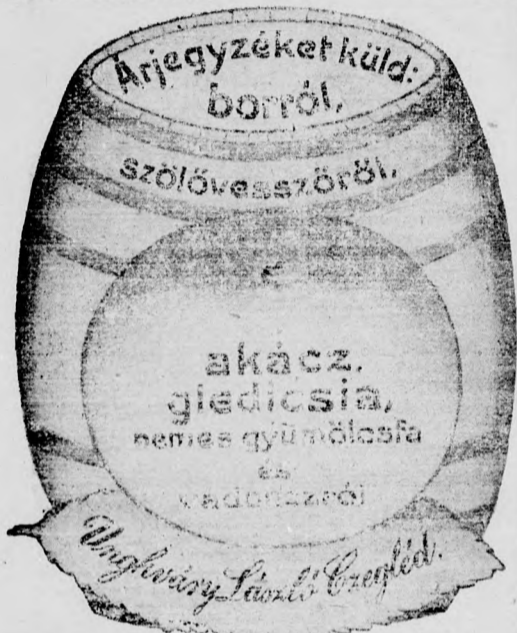 Árjegyzéket küld:
borról,
szőlővesszőről,
akácz,
gledicsia,
nemes gyümölcsfa
és
vadonczról
Unghváry László Czegléd.